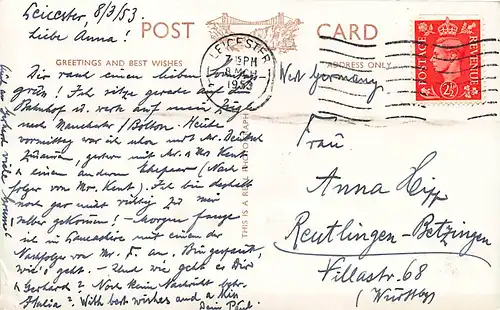 Leicester, 8/3/53
Liebe Anna!
POST CARD
GREETINGS AND BEST WISHES
ADDRESS ONLY
LEICESTER
7 15 PM
8 MCH
1953
POSTAGE
REVENUE
2½D
West Germany
Dir rasch einen lieben
gruß! Ich sitze gerade auf dem
Bahnhof u. warte auf meinen Zug
nach Manchester/Bolton. Heute
vormittag war ich schon mit Mr.
zusammen, gestern mit Mr. & Mrs Kent
& einem anderen Ehepaar (Nach
folger von Mr. Kent). Ich bin deshalb
noch gar nicht richtig zu mir
selber gekommen! – Morgen fange
ich in Lancashire mit einem der
Nachfolger von Mr. F. an. Bin gespannt,
wie's geht. – Und wie geht es Dir
& Gerhard? Noch kein Nachricht betr.
Italia? With best wishes and a kiss
Dein Paul.
THIS IS A REAL PHOTOGRAPH
Frau
Anna Hipp
Reutlingen-Betzingen
Villastr. 68
(Württbg)
Gerhard viele